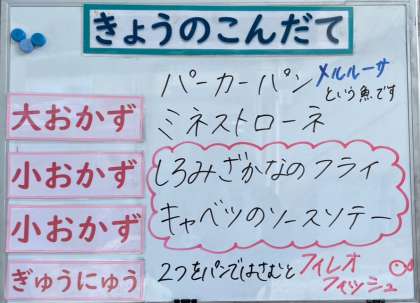 きょうのこんだて
パーカーパン
メルルーサ
という魚です
大おかず
ミネストローネ
小おかず
しろみざかなのフライ
小おかず
キャベツのソースソテー
ぎゅうにゅう
2つをパンではさむと
フィレオ
フィッシュ